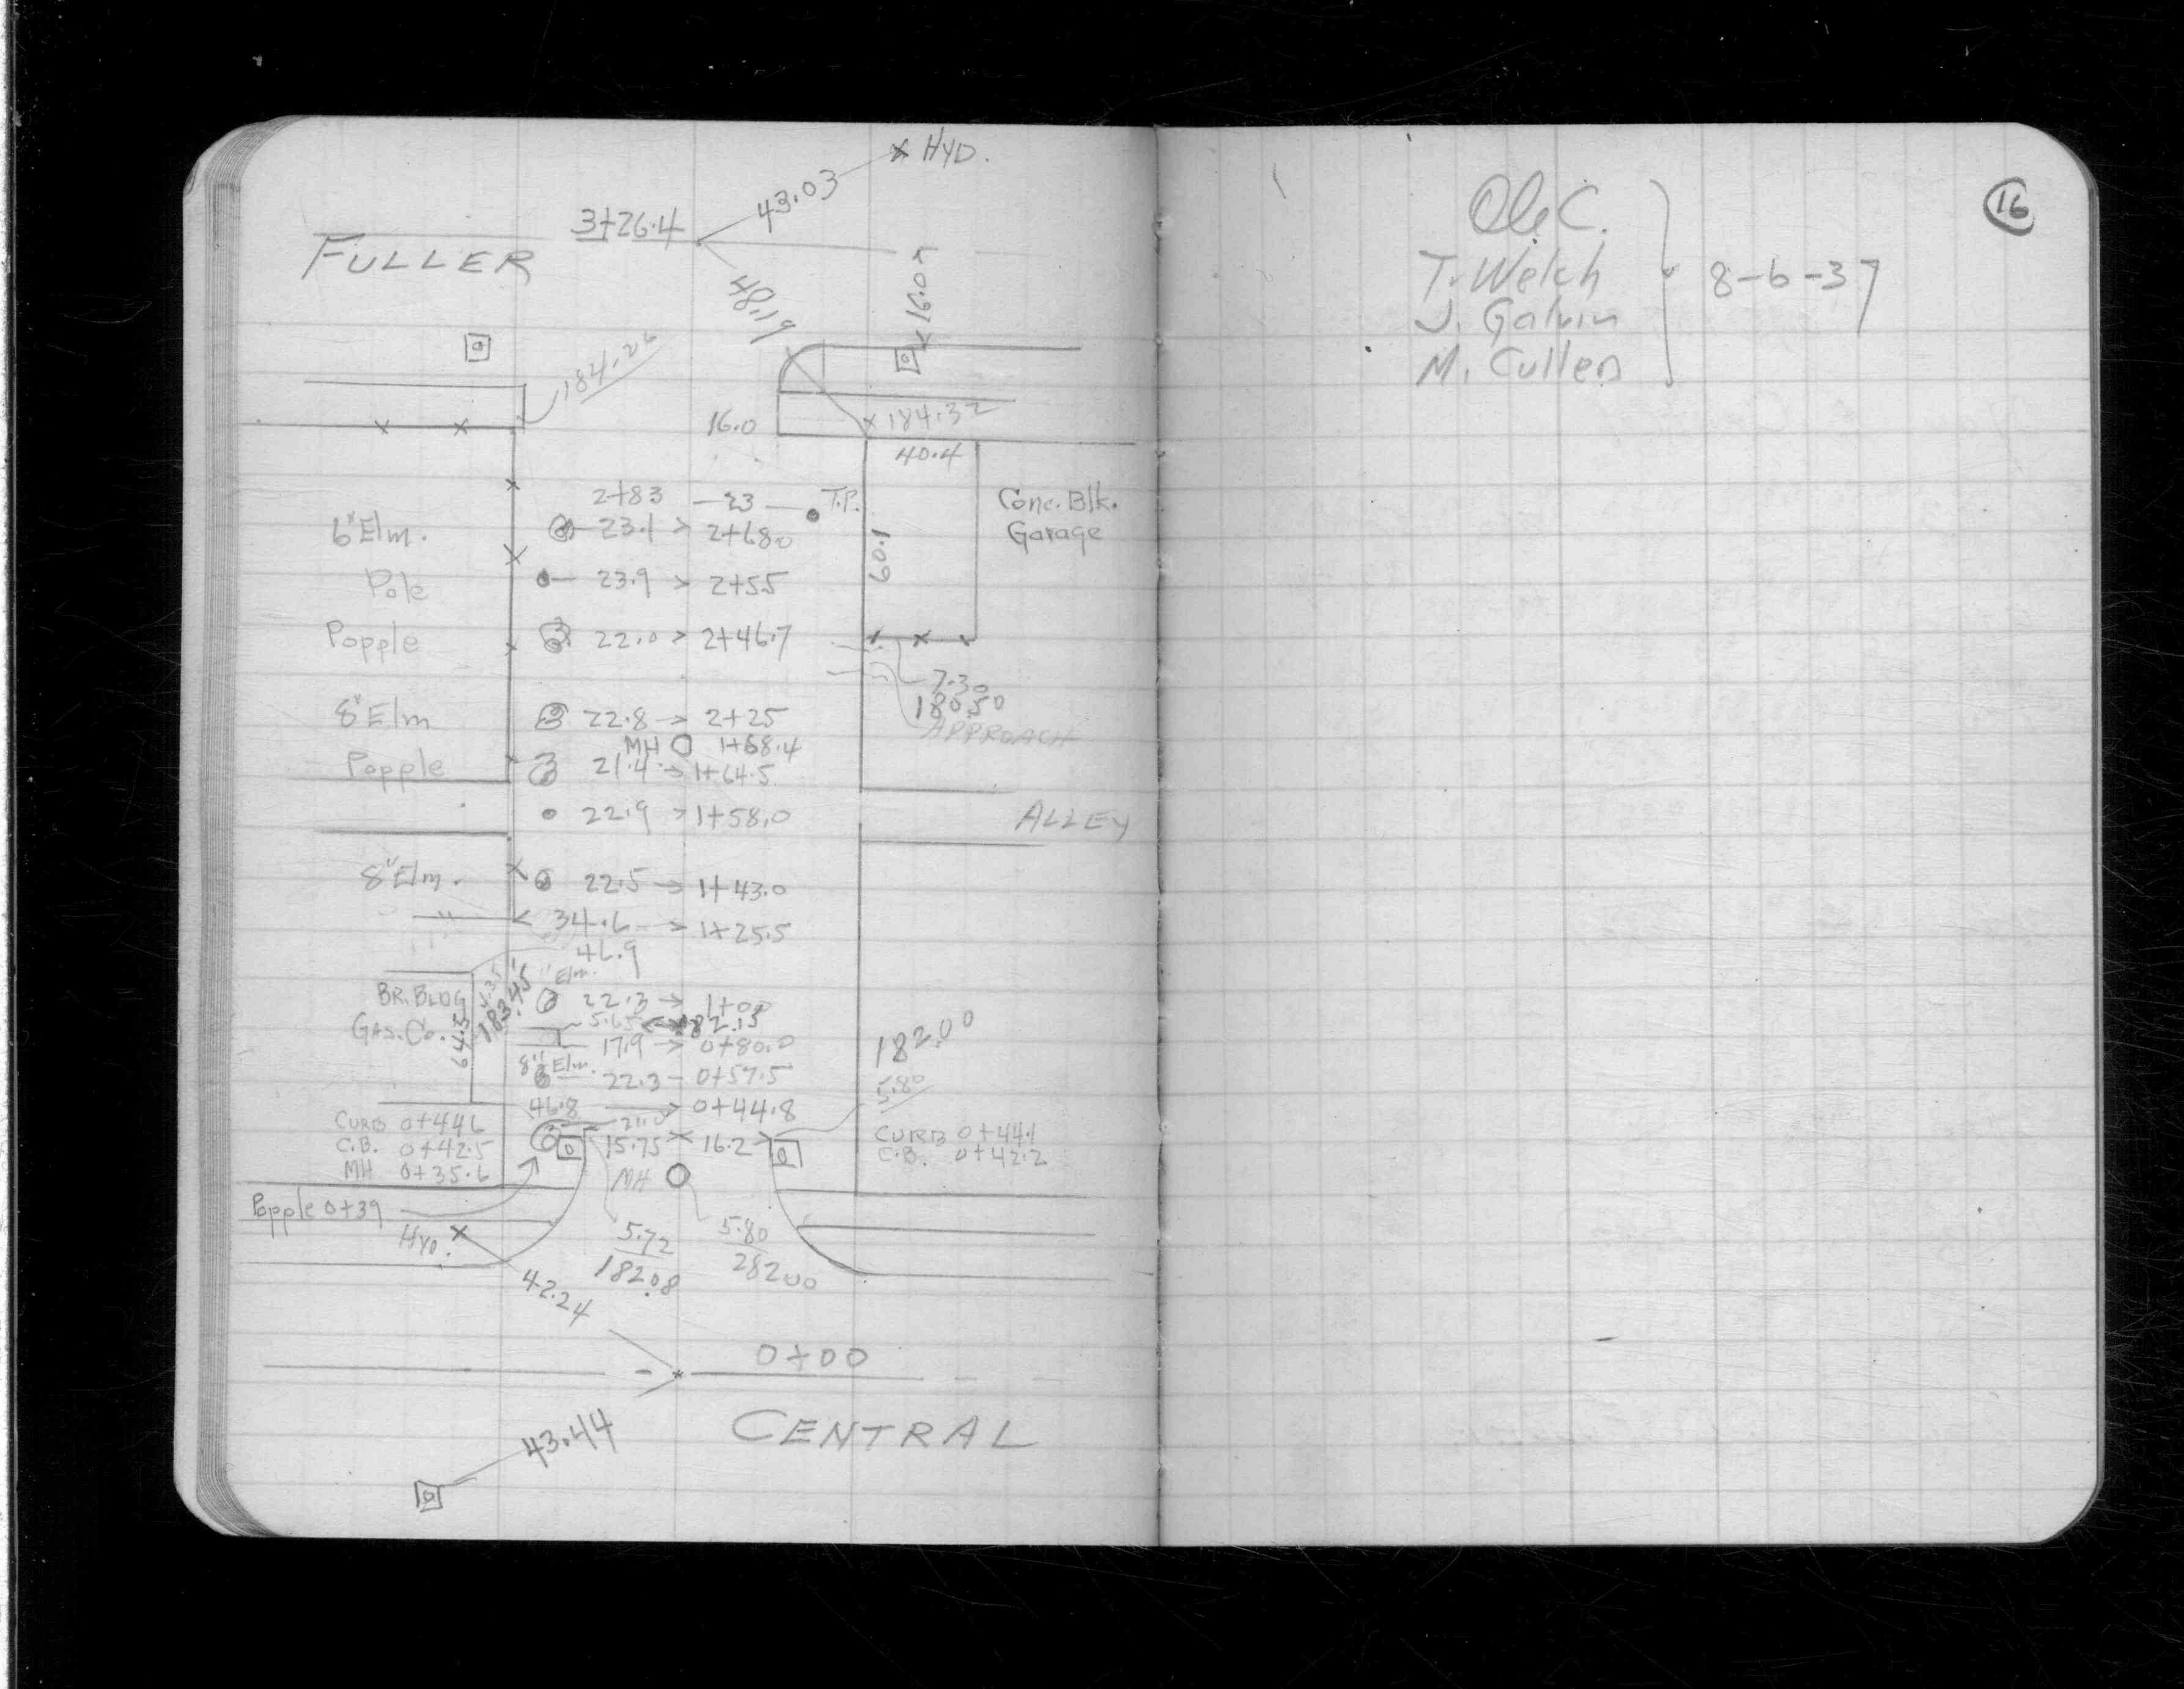 HYD.
43.03
3+26.4
FULLER
48.19
184.26
16.0
184.32
40.4
2+83 — 23 — T.P.
Conc. Blk.
Garage
6" Elm. 23.1 > 2+68.0
60.1
Pole 23.9 > 2+55
Popple 22.0 > 2+46.7
7.30
180.50
APPROACH
8" Elm 22.8 → 2+25
MH 1+68.4
Popple 21.4 → 1+64.5
22.9 > 1+58.0
ALLEY
8" Elm. 22.5 → 1+43.0
" < 34.6 → 1+25.5
46.9
" Elm.
BR. BLDG 22.3 → 1+00
183.45
GAS. Co. 5.65 182.15
64.5
17.9 → 0+80.0
182.00
8" Elm. 22.3 — 0+57.5
5.80
46.8 → 0+44.8
CURB 0+44.6
21.0
C.B. 0+42.5
15.75 × 16.2
CURB 0+44.1
C.B. 0+42.2
MH 0+35.6
MH
Popple 0+39
HYD.
5.72
182.08
5.80
282.00
42.24
0+00
43.44
CENTRAL
16
Ole C.
T. Welch
J. Galvin
M. Cullen
8-6-37